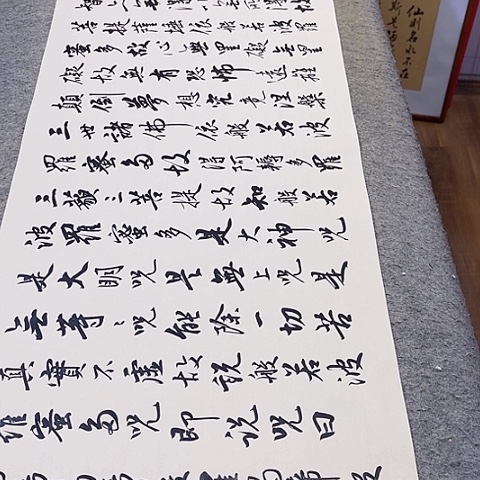 菩提薩埵依般若波羅
蜜多故心無罣礙無罣
礙故無有恐怖遠離
顛倒夢想究竟涅槃
三世諸佛依般若波
羅蜜多故得阿耨多羅
三藐三菩提故知般若
波羅蜜多是大神咒
是大明咒是無上咒是
無等〻咒能除一切苦
真實不虛故說般若波
羅蜜多咒即說咒曰
仙則名水不在
斯是